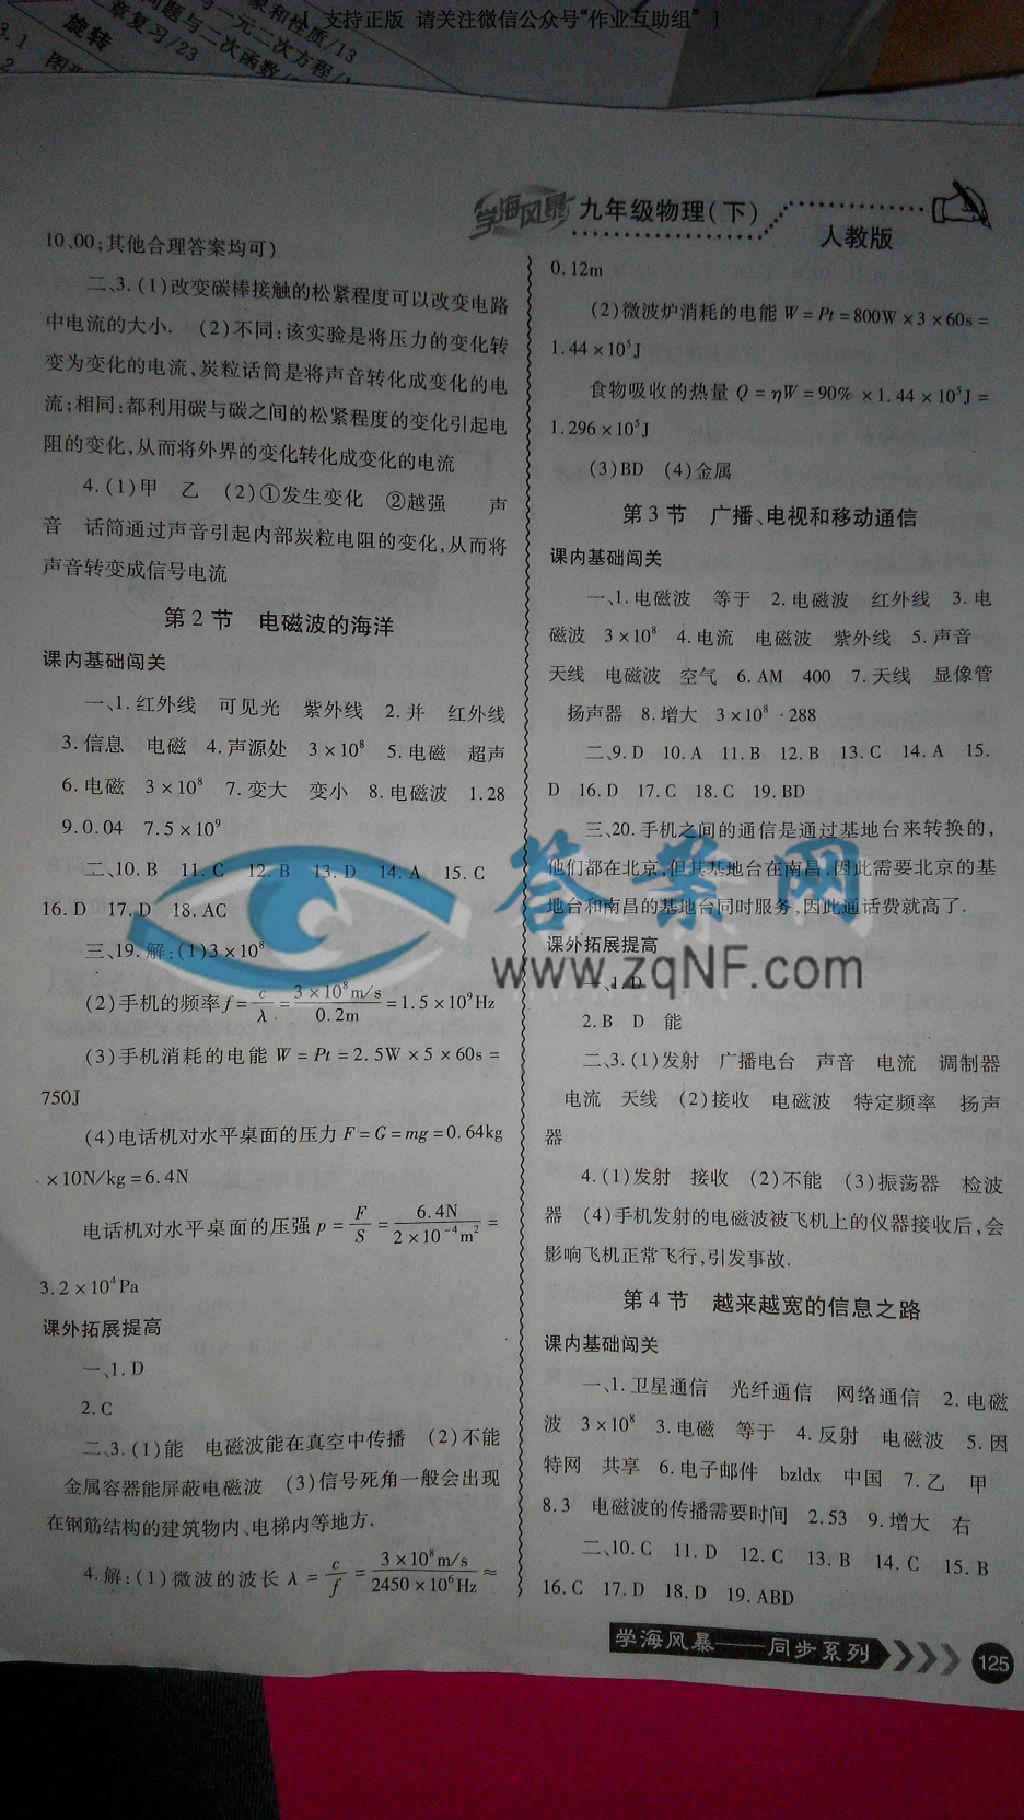 [ 支持正版 请关注微信公众号"作业互助组" ]
旋转
章复习/23
象和性质/13
学海风暴 九年级物理(下)
人教版
10、00;其他合理答案均可)
二、3.(1)改变碳棒接触的松紧程度可以改变电路
中电流的大小. (2)不同:该实验是将压力的变化转
变为变化的电流,炭粒话筒是将声音转化成变化的电
流;相同:都利用碳与碳之间的松紧程度的变化引起电
阻的变化,从而将外界的变化转化成变化的电流
4.(1)甲 乙 (2)①发生变化 ②越强 声
音 话筒通过声音引起内部炭粒电阻的变化,从而将
声音转变成信号电流
第2节 电磁波的海洋
课内基础闯关
一、1.红外线 可见光 紫外线 2.并 红外线
3.信息 电磁 4.声源处 3×10⁸ 5.电磁 超声
6.电磁 3×10⁸ 7.变大 变小 8.电磁波 1.28
9.0.04 7.5×10⁹
二、10.B 11.C 12.B 13.D 14.A 15.C
16.D 17.D 18.AC
三、19.解:(1)3×10⁸
(2)手机的频率f=c/λ=3×10⁸m/s/0.2m=1.5×10⁹Hz
(3)手机消耗的电能W=Pt=2.5W×5×60s=
750J
(4)电话机对水平桌面的压力F=G=mg=0.64kg
×10N/kg=6.4N
电话机对水平桌面的压强p=F/S=6.4N/2×10⁻⁴m²=
3.2×10⁴Pa
课外拓展提高
一、1.D
2.C
二、3.(1)能 电磁波能在真空中传播 (2)不能
金属容器能屏蔽电磁波 (3)信号死角一般会出现
在钢筋结构的建筑物内、电梯内等地方.
4.解:(1)微波的波长λ=c/f=3×10⁸m/s/2450×10⁶Hz≈
0.12m
(2)微波炉消耗的电能W=Pt=800W×3×60s=
1.44×10⁵J
食物吸收的热量Q=ηW=90%×1.44×10⁵J=
1.296×10⁵J
(3)BD (4)金属
第3节 广播、电视和移动通信
课内基础闯关
一、1.电磁波 等于 2.电磁波 红外线 3.电
磁波 3×10⁸ 4.电流 电磁波 紫外线 5.声音
天线 电磁波 空气 6.AM 400 7.天线 显像管
扬声器 8.增大 3×10⁸ ·288
二、9.D 10.A 11.B 12.B 13.C 14.A 15.
D 16.D 17.C 18.C 19.BD
三、20.手机之间的通信是通过基地台来转换的,
他们都在北京,但其基地台在南昌,因此需要北京的基
地台和南昌的基地台同时服务,因此通话费就高了.
课外拓展提高
一、1.D
2.B D 能
二、3.(1)发射 广播电台 声音 电流 调制器
电流 天线 (2)接收 电磁波 特定频率 扬声
器
4.(1)发射 接收 (2)不能 (3)振荡器 检波
器 (4)手机发射的电磁波被飞机上的仪器接收后,会
影响飞机正常飞行,引发事故.
第4节 越来越宽的信息之路
课内基础闯关
一、1.卫星通信 光纤通信 网络通信 2.电磁
波 3×10⁸ 3.电磁 等于 4.反射 电磁波 5.因
特网 共享 6.电子邮件 bzldx 中国 7.乙 甲
8.3 电磁波的传播需要时间 2.53 9.增大 右
二、10.C 11.D 12.C 13.B 14.C 15.B
16.C 17.D 18.D 19.ABD
答案网
www.zqNF.com
学海风暴——同步系列
125